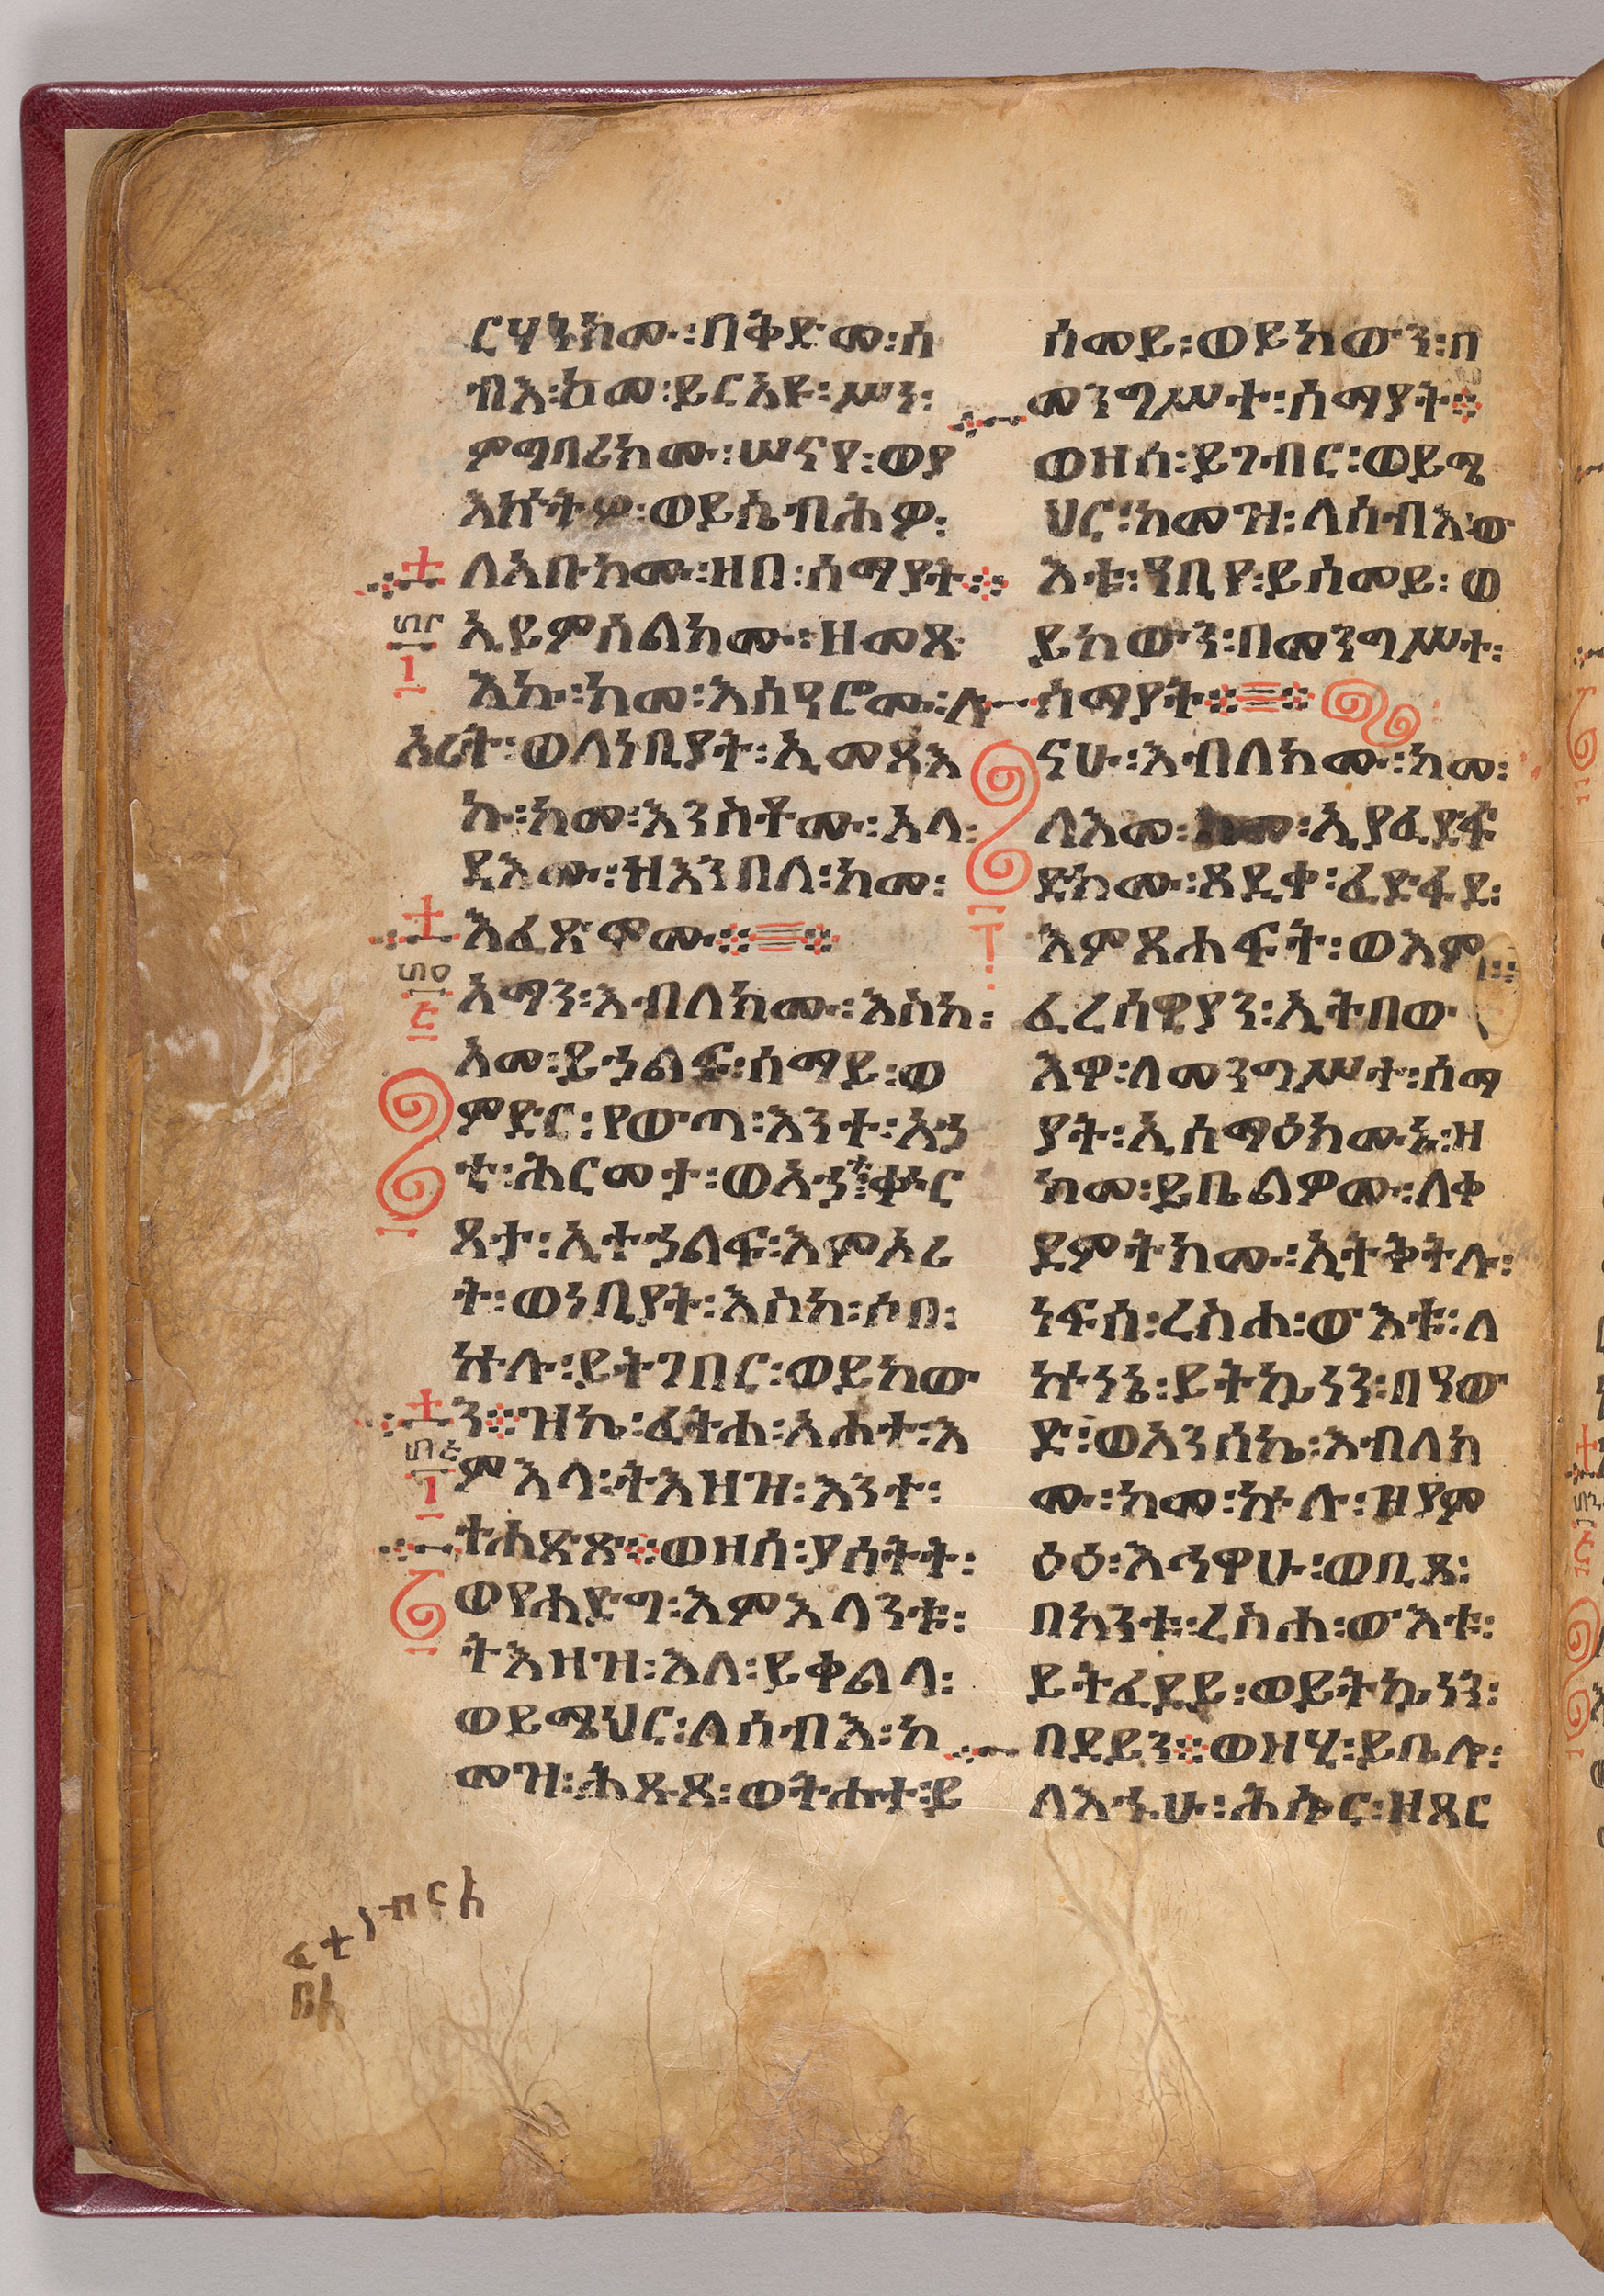 ርሃንክሙ፡በቅድመ፡ሰ
ብእ፡ከመ፡ይርአዩ፡ሥነ፡
ምግባሪክሙ፡ሠናየ፡ወያ
እኵትዎ፡ወይሴብሕዎ፡
ለአቡክሙ፡ዘበ፡ሰማያት፨
ኢይምሰልክሙ፡ዘመጻ
እኩ፡ከመ፡እስዓሮሙ፡ለ
አሪት፡ወለነቢያት፡ኢመጻእ
ኩ፡ከመ፡እንስቶሙ፡አላ፡
ዳእሙ፡ዝእንበለ፡ከመ፡
እፈጽሞሙ፨
አማን፡እብለክሙ፡እስከ፡
አመ፡ይኃልፍ፡ሰማይ፡ወ
ምድር፡የውጣ፡እንተ፡አኃ
ቲ፡ሕርመታ፡ወአኃቲ፡ቅር
ጸታ፡ኢተኃልፍ፡እምኦሪ
ት፡ወነቢያት፡እስከ፡ሶበ፡
ኵሉ፡ይትገበር፡ወይከው
ን፨ዝኬ፡ፈትሐ፡አሐተ፡እ
ምእላ፡ትእዘዝ፡እንተ፡
ተሐጽጽ፨ወዘሰ፡ያሰትት፡
ወየሐድግ፡እምእላንቱ፡
ትእዘዝ፡እለ፡ይቀልላ፡
ወይሜህር፡ለሰብእ፡ከ
መዝ፡ሕጹጸ፡ወትሑተ፡ይ
ሰመይ፡ወይከውን፡በ
መንግሥተ፡ሰማያት፨
ወዘሰ፡ይገብር፡ወይሜ
ህር፡ከመዝ፡ለሰብእ፡ው
እቱ፡ዓቢየ፡ይሰመይ፡ወ
ይከውን፡በመንግሥተ፡
ሰማያት፨
ናሁ፡እብለክሙ፡ከመ፡
ለእመ፡ኢያፈድፍ
ድክሙ፡ጸዲቀ፡ፈድፋደ፡
እምጸሐፍት፡ወእም
ፈረሰዊያን፡ኢትበው
እዋ፡ለመንግሥተ፡ሰማ
ያት፡ኢሰማዕክሙኑ፡ዘ
ከመ፡ይቤልዎሙ፡ለቀ
ደምትክሙ፡ኢትቅትሉ፡
ነፍሰ፡ረስሐ፡ውእቱ፡ለ
ኵነኔ፡ይትኴነን፡በዓው
ድ፡ወአንሰኬ፡እብለክ
ሙ፡ከመ፡ኵሉ፡ዝያም
ዕዕ፡እኅዋሁ፡ወቢጸ፡
በከንቱ፡ረስሐ፡ውእቱ፡
ይትፈደይ፡ወይትኴነን፡
በደይን፨ወዘሂ፡ይቤሎ፡
ለእኁሁ፡ሕሡር፡ዘጸር